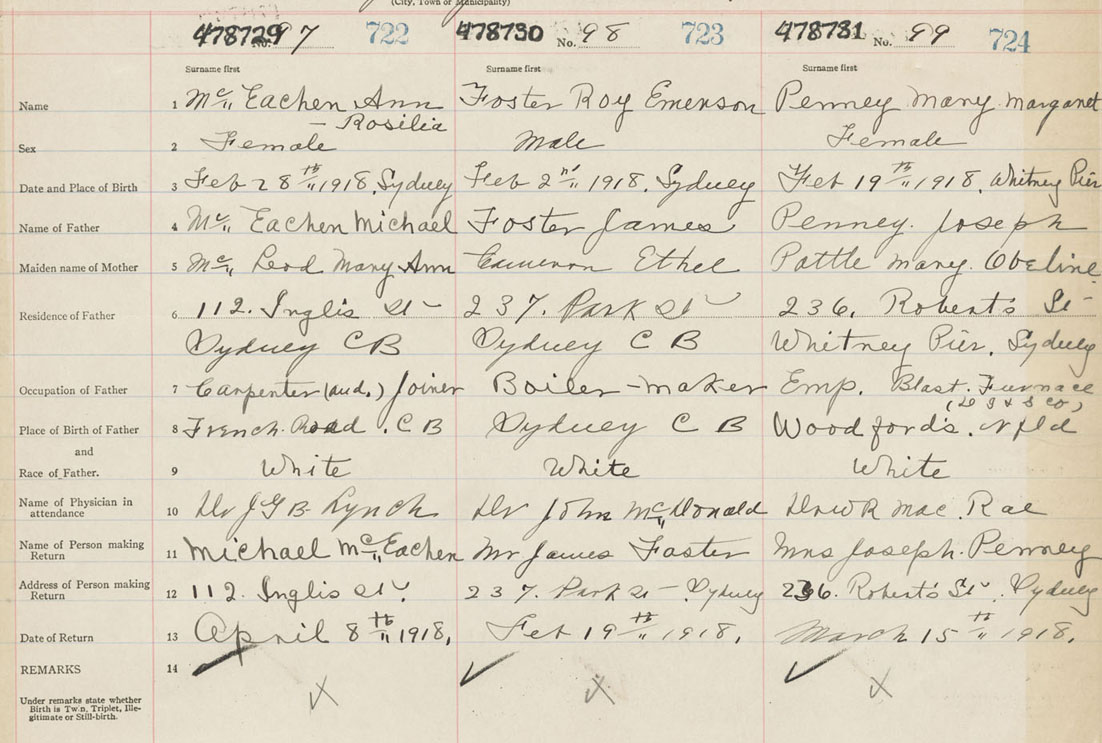 (City, Town or Municipality)
478729 No. 97 722 478730 No. 98 723 478731 No. 99 724
Surname first Surname first Surname first
Name 1 Mc Eachen Ann Foster Roy Emerson Penney Mary Margaret
- Rosilia
Sex 2 Female Male Female
Date and Place of Birth 3 Feb 28th 1918, Sydney Feb 2nd 1918. Sydney Feb 19th 1918, Whitney Pier
Name of Father 4 Mc Eachen Michael Foster James Penney. Joseph
Maiden name of Mother 5 Mc Leod Mary Ann Cameron Ethel Pottle Mary. Obeline
Residence of Father 6 112. Inglis St 237. Park St 236. Robert's St
Sydney C B Sydney C B Whitney Pier, Sydney
Occupation of Father 7 Carpenter (and.) Joiner Boiler-maker Emp. Blast. Furnace
(D I & S Co)
Place of Birth of Father 8 French Road . C B Sydney C B Woodford's. Nfld
and
Race of Father. 9 White White White
Name of Physician in
attendance 10 Dr J G B Lynch Dr John Mc Donald Dr W R Mac. Rae
Name of Person making
Return 11 Michael Mc Eachen Mr James Foster Mrs Joseph. Penney
Address of Person making
Return 12 112. Inglis St. 237. Park St - Sydney 236. Robert's St. Sydney
Date of Return 13 April 8th 1918, Feb 19th 1918, March 15th 1918,
REMARKS 14
Under remarks state whether
Birth is Twin, Triplet, Ille-
gitimate or Still-birth.
X X X